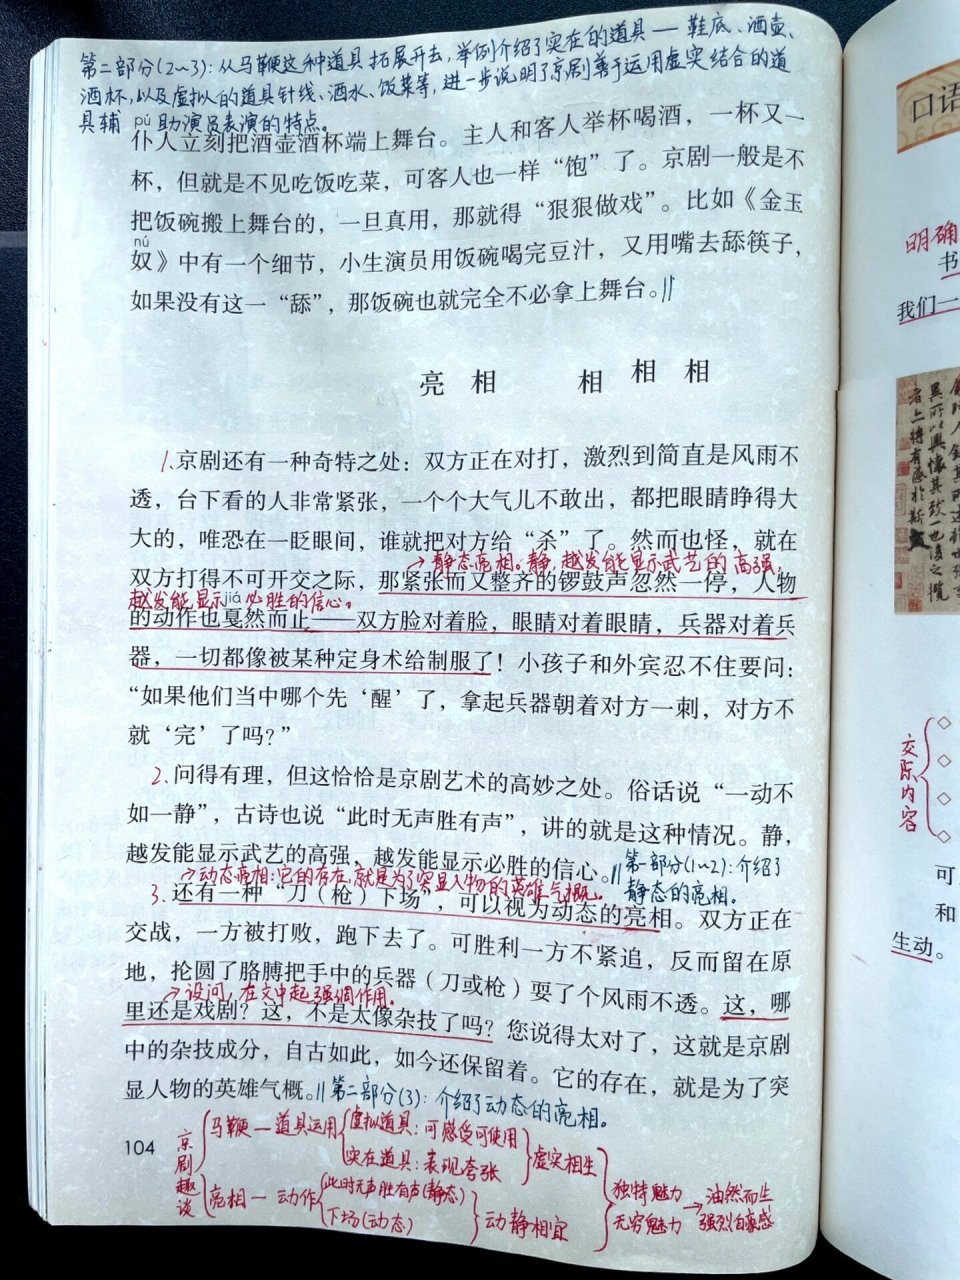 第二部分(2~3): 从马鞭这种道具拓展开去,举例介绍了实在的道具—鞋底、酒壶、
酒杯,以及虚拟的道具针线、酒水、饭菜等,进一步说明了京剧善于运用虚实结合的道
具辅助演员表演的特点。
pú
仆人立刻把酒壶酒杯端上舞台。主人和客人举杯喝酒，一杯又一
杯，但就是不见吃饭吃菜，可客人也一样“饱”了。京剧一般是不
把饭碗搬上舞台的，一旦真用，那就得“狠狠做戏”。比如《金玉
nú
奴》中有一个细节，小生演员用饭碗喝完豆汁，又用嘴去舔筷子，
如果没有这一“舔”，那饭碗也就完全不必拿上舞台。//
亮 相 相 相 相
1.京剧还有一种奇特之处：双方正在对打，激烈到简直是风雨不
透，台下看的人非常紧张，一个个大气儿不敢出，都把眼睛睁得大
大的，唯恐在一眨眼间，谁就把对方给“杀”了。然而也怪，就在
→静态亮相。静,越发能显示武艺的高强,
双方打得不可开交之际，那紧张而又整齐的锣鼓声忽然一停，人物
越发能显示必胜的信心。
jiá
的动作也戛然而止——双方脸对着脸，眼睛对着眼睛，兵器对着兵
器，一切都像被某种定身术给制服了！小孩子和外宾忍不住要问：
“如果他们当中哪个先‘醒’了，拿起兵器朝着对方一刺，对方不
就‘完’了吗？”
2.问得有理，但这恰恰是京剧艺术的高妙之处。俗话说“一动不
如一静”，古诗也说“此时无声胜有声”，讲的就是这种情况。静，
越发能显示武艺的高强，越发能显示必胜的信心。//第一部分(1~2):介绍了
静态的亮相。
→动态亮相:它的存在,就是为了突显人物的英雄气概。
3.还有一种“刀（枪）下场”，可以视为动态的亮相。双方正在
交战，一方被打败，跑下去了。可胜利一方不紧追，反而留在原
地，抡圆了胳膊把手中的兵器（刀或枪）耍了个风雨不透。这，哪
→设问,在文中起强调作用。
里还是戏剧？这，不是太像杂技了吗？您说得太对了，这就是京剧
中的杂技成分，自古如此，如今还保留着。它的存在，就是为了突
显人物的英雄气概。//第二部分(3): 介绍了动态的亮相。
104
京剧趣谈
马鞭—道具运用
虚拟道具:可感受可使用
实在道具:表现夸张
虚实相生
亮相—动作
此时无声胜有声(静态)
下场(动态)
动静相宜
独特魅力
无穷魅力
→油然而生
强烈自豪感
口语
明确
书
我们一
交际内容
可
和
生动。